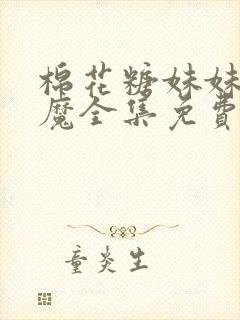 棉花糖妹妹
魔全集免費
童炎生